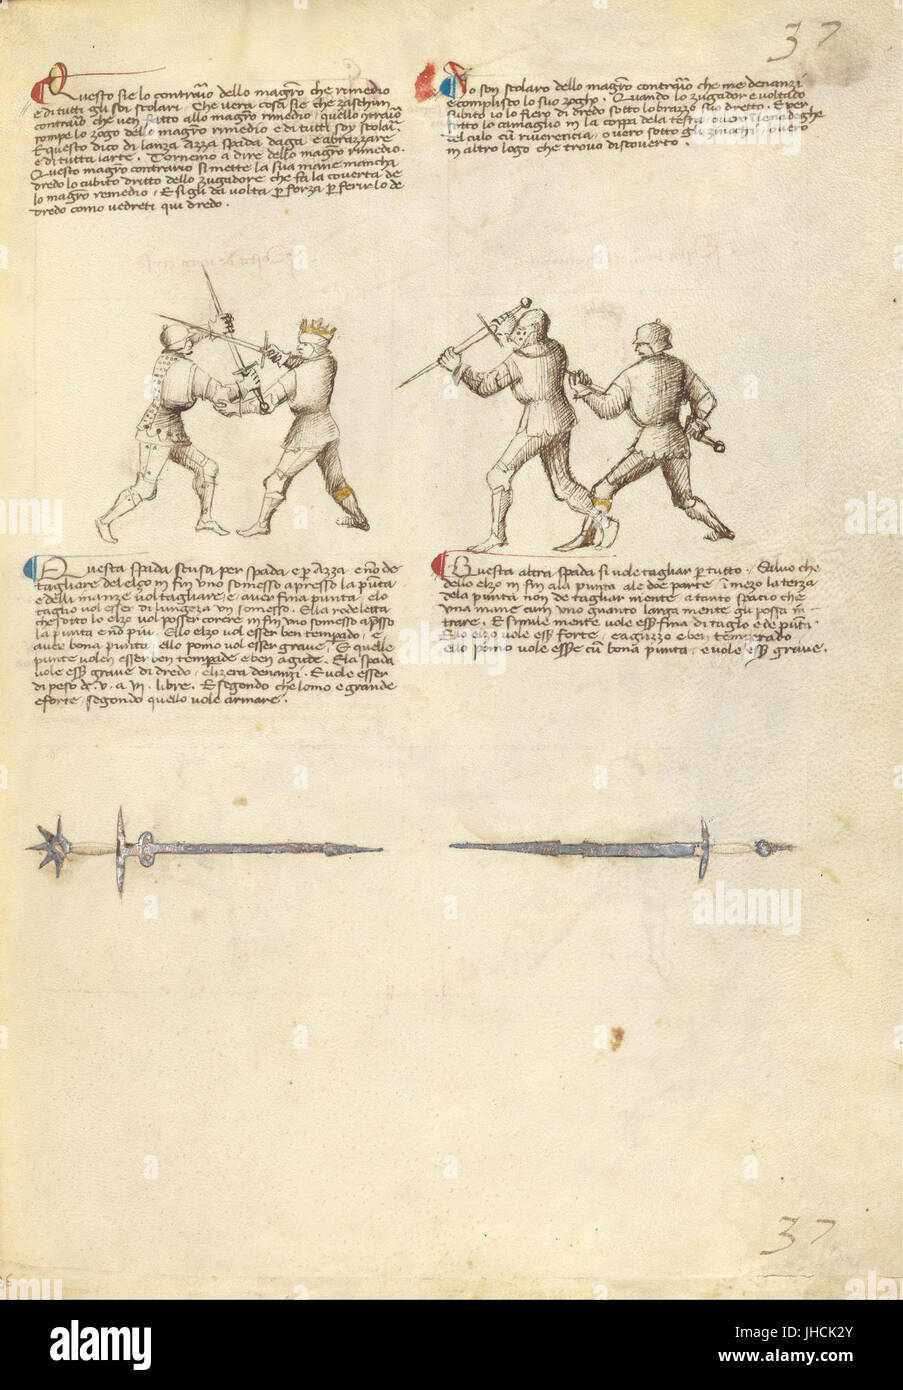 37
Questo sie lo contrario dello magistro che remedio
e di tutti gli soi scolari. Che vera cosa sie che zaschun
contrario che ven fatto allo magistro rimedio, quello contrario
rompe lo zogo dello magistro rimedio e di tutti soy scolari.
E questo dico di lanza azza spada daga e abrazzare
e di tutta larte. Tornemo a dire dello magistro rimedio.
Questo magistro contrario si mette la sua mane mancha
dredo lo cubito dritto dello zugadore che fa la coverta de
lo magistro remedio, E si gli dà volta per forza per ferirlo de
dredo como vedreti qui dredo.
Io son scolaro dello magistro contrario che me denanzi
e complisco lo suo zogho. Quando lo zugador e voltado
subito io lo fiero di dredo sotto lo brazzo suo dretto. E per
sotto lo camaglio in la coppa de la testa, overo in le nadeghe
del culo cum riverencia, overo sotto gli zinochi, overo
in altro logo che trovo discoverto.
Questa spada s'è usa per spada e per Azza, e non de
tagliare del elzo in fin uno somesso apresso la punta
e delli inanze vol tagliare, e aver fina punta, e lo
taglio vol esser di lungeza un somesso. E la rodeletta
che sotto lo elzo vol posser corere in fin uno somesso apresso
la punta e non piu. E lo elzo vol esser ben tempado, e
aver bona punta, e llo pomo vol esser grave, E quelle
punte volen esser ben tempade e ben agude. E la spada
vole esser grave di dredo, e lizera denanzi. E vole esser
di peso de .V. a .VII. libre. E segondo che lomo e grande
e forte, segondo quello vole armare.
Questa altra spada si vole tagliar per tutto. Salvo che
dello elzo in fin a la punta a le doe parte, in mezo la terza
de la punta non de tagliar niente a tanto spacio che
una mane cum uno guanto larga mente gli possa in-
trare. E simile mente vole esser fina di taglo e de punta
E lo elzo vole esser forte, e aguzzo e ben temperado
e llo pomo vole esser cum bona punta, e vole esser grave.
37
alamy
Image ID: JHCK2Y
www.alamy.com